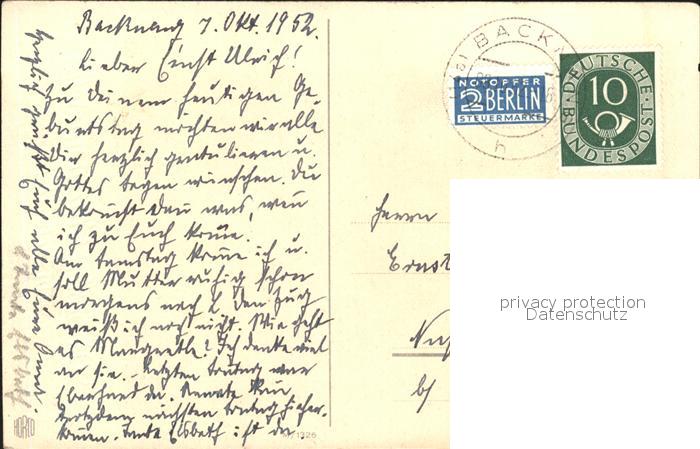 Backnang 7. Okt. 1952.
Lieber Ernst Ulrich!
Zu Deinem heutigen Ge-
burtstag möchten wir alle
Dir herzlich gratulieren u.
Gottes Segen wünschen. Du
bekommst dann was, wenn
ich zu Euch komme.
Am Samstag komme ich u.
soll Mutter ruhig schon
morgens nach den Zug
weiß ich noch nicht. Wie geht
es Margretle? Ich denke viel
an sie. Letzten Sonntag war
Eberhard da. Renate kann
trotzdem nächsten Sonntag hieher-
kommen. Tante Elsbeth ist da.
Herzlich grüßt Euch alle Eure
BACKN
h
NOTOPFER
2 BERLIN
STEUERMARKE
DEUTSCHE
10
BUNDESPOST
Herrn
Ernst
b/
privacy protection
Datenschutz
HORTO
1326